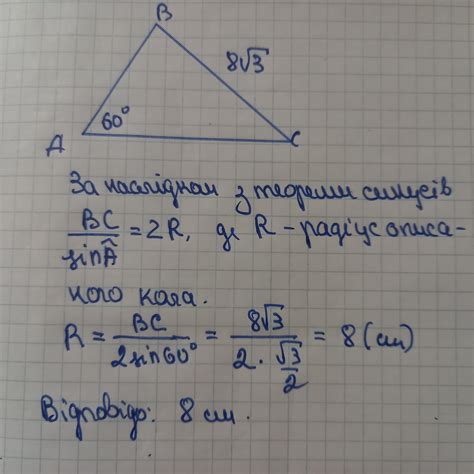 B
8√3
60°
A
C
За наслідком з теореми синусів
BC/sinÂ = 2R, де R - радіус описа-
ного кола.
R = BC/2sin60° = 8√3/(2·√3/2) = 8 (см)
Відповідь: 8 см.